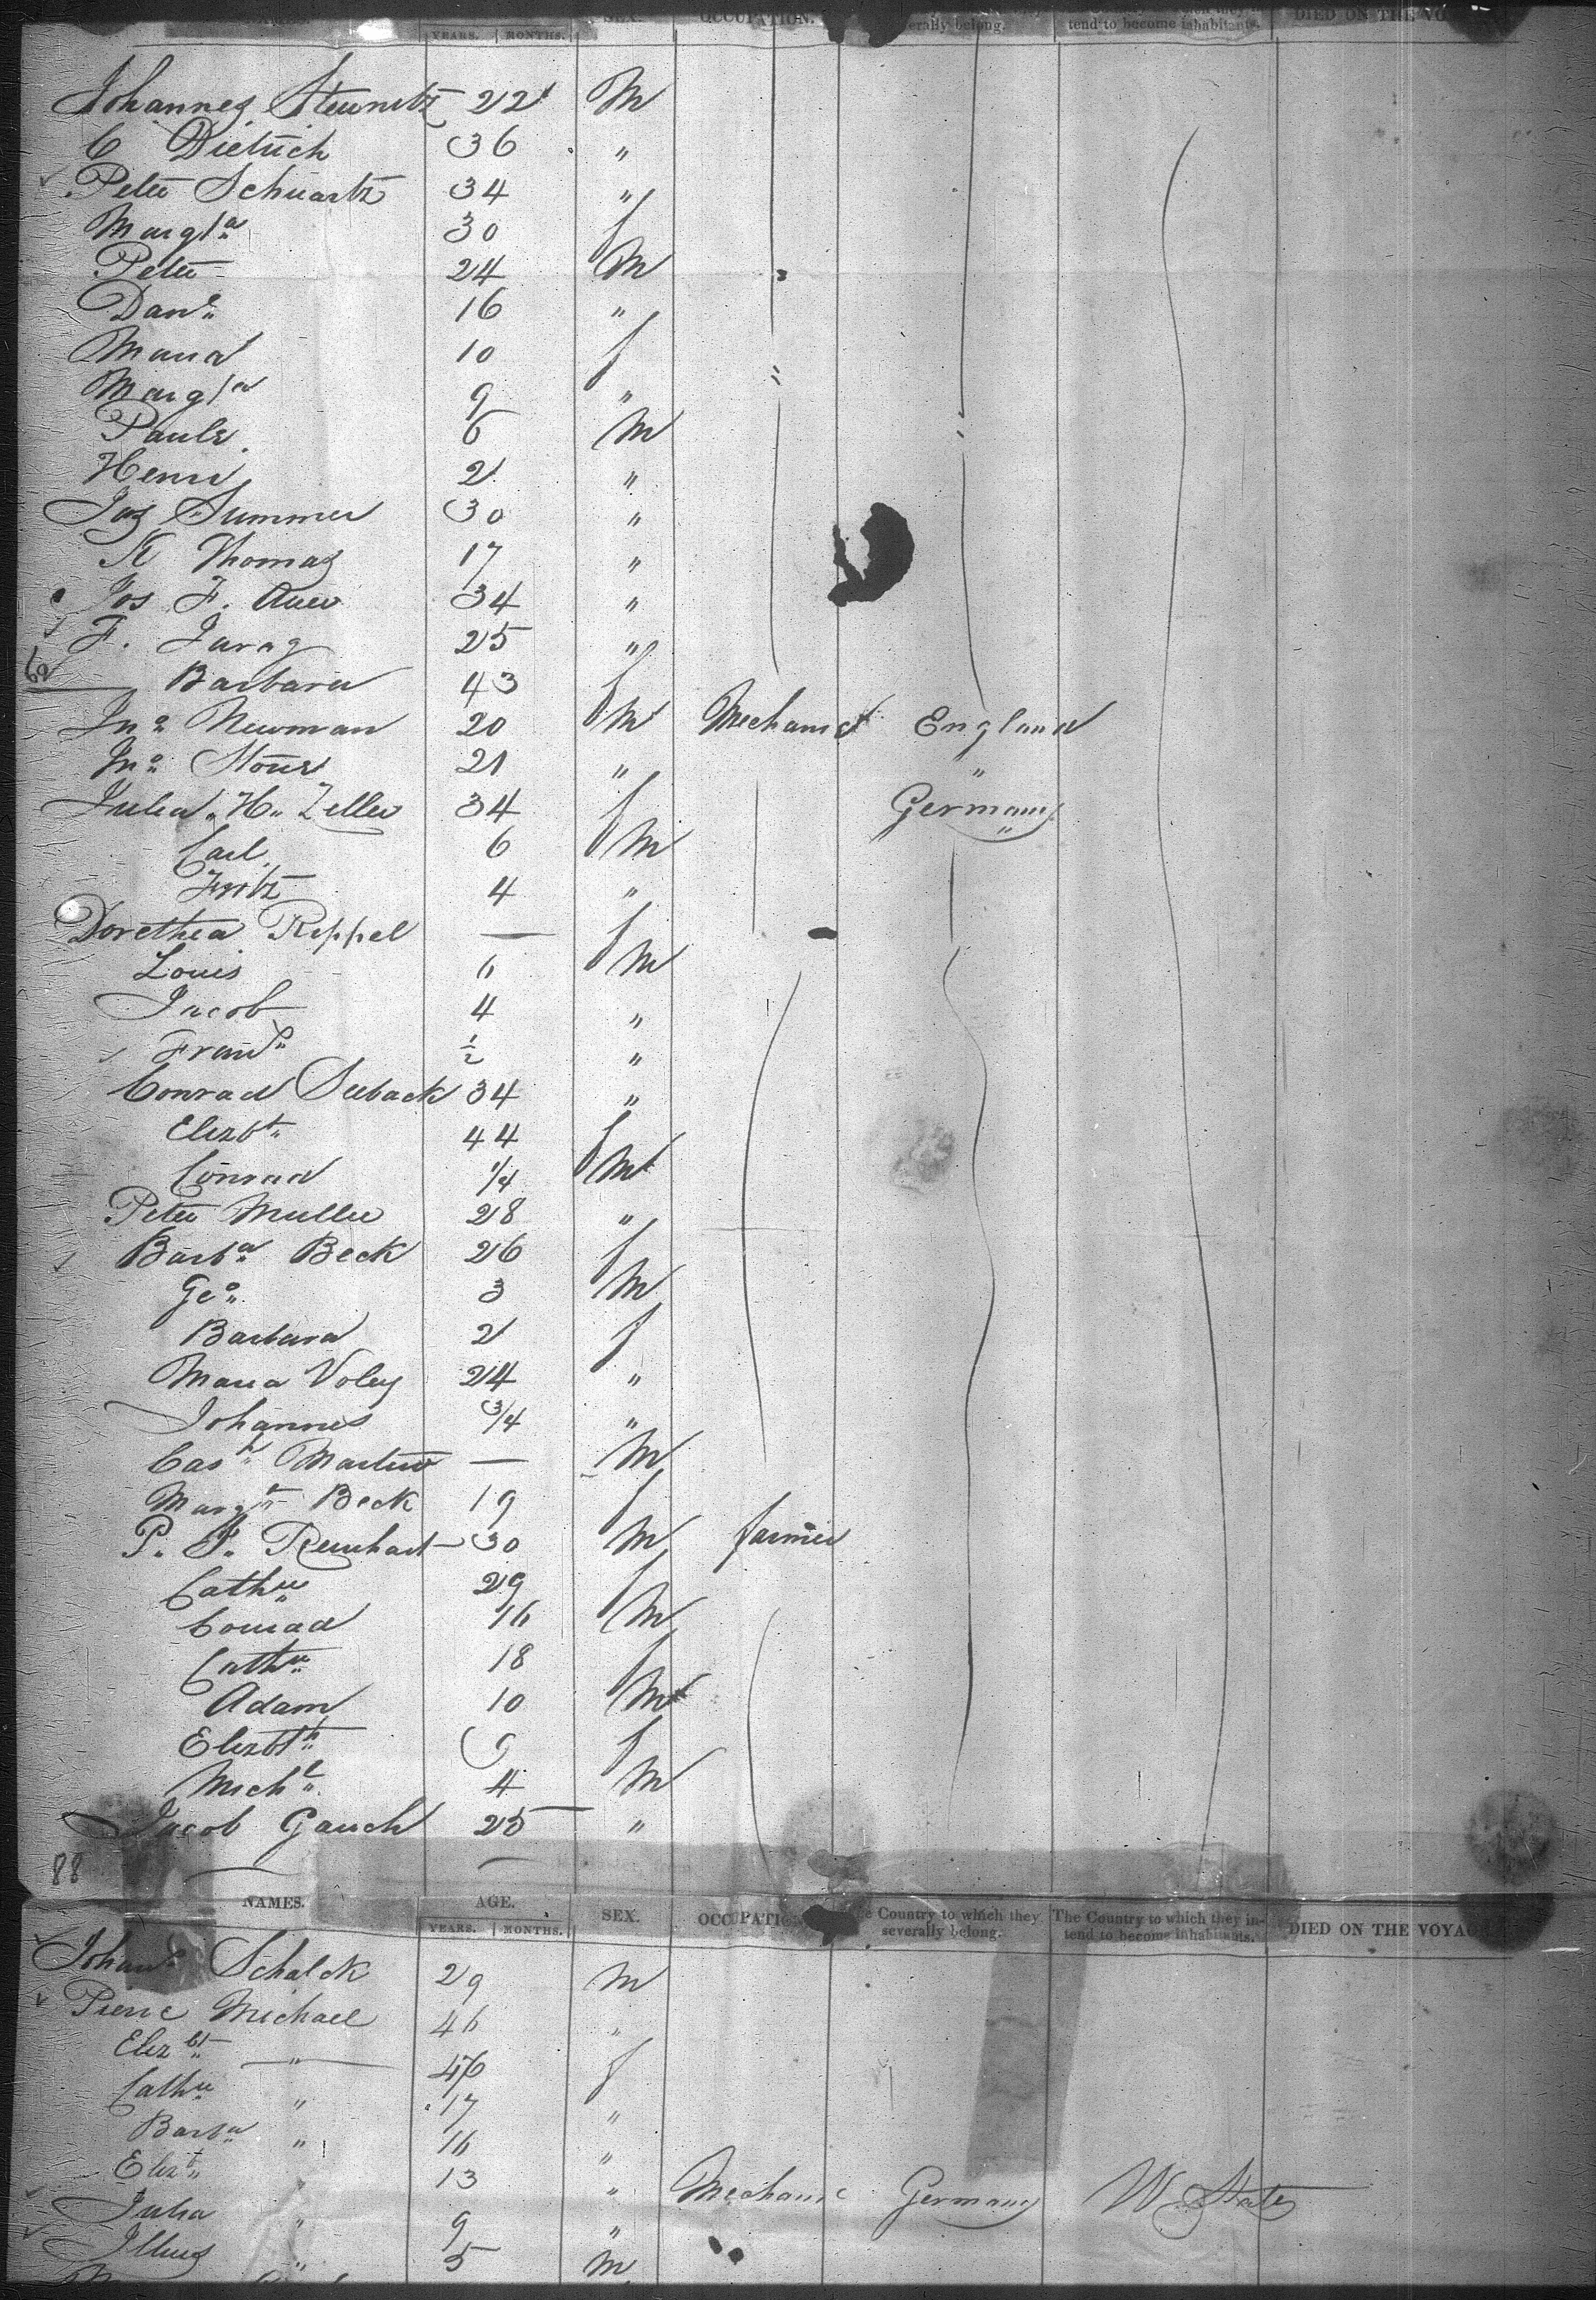 YEARS. MONTHS. SEX. OCCUPATION. severally belong. tend to become inhabitants. DIED ON THE
Johannes 22 M
C Dietrich 36 "
Peter Schuartz 34 "
Margta 30 f
Peter 24 M
Danl 16 "
Maria 10 f
Margta 9 "
Paule 6 M
Henri 2 "
Jas Summer 30 "
St Thomas 17 "
Jos F. Auer 34 "
F. 25 "
60 Barbara 43 f
Jno Newman 20 M Mechanic England
Jno Stone 21 " "
Julia H. Zeller 34 f Germany
Carl 6 M "
Fritz 4 "
Dorethea Rippel — f
Louis 6 M
Jacob 4 "
Frans ½ "
Conrad Seeback 34 "
Elizbt 44 f
Conrad 1/4 M
Peter Muller 28 "
Barba Beck 26 f
Geo 3 M
Barbara 2 f
Maria Voley 24 "
Johannes 3/4 "
Cash Martin — M
Margt Beck 19 f
P. J. Reinhart 30 M farmer
Cathe 29 f
Conrad 16 M
Cathe 18 f
Adam 10 M
Elizbth 9 f
Michl 4 M
Jacob Gauch 25 "
88
NAMES. AGE. SEX. OCCUPATION Country to which they The Country to which they in- DIED ON THE VOYAG
YEARS. MONTHS. severally belong. tend to become inhabitants.
Johans Schalck 29 M
Pierre Michael 46 "
Elizbt " 46 f
Cathe " 17 "
Barba " 16 "
Elizt " 13 " Mechanic Germany W States
Julia " 9 "
" 5 M